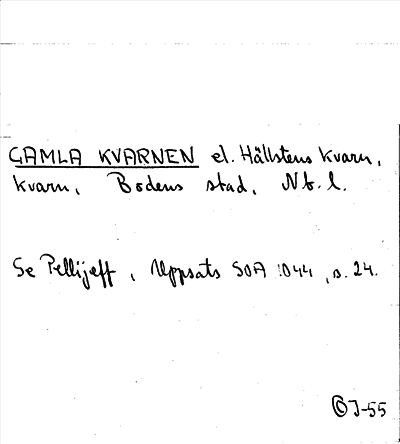 GAMLA KVARNEN el. Hällstens kvarn,
kvarn, Bodens stad, Nb. l.
Se Pellijeff, Uppsats SOA 1044, s. 24.
J-55